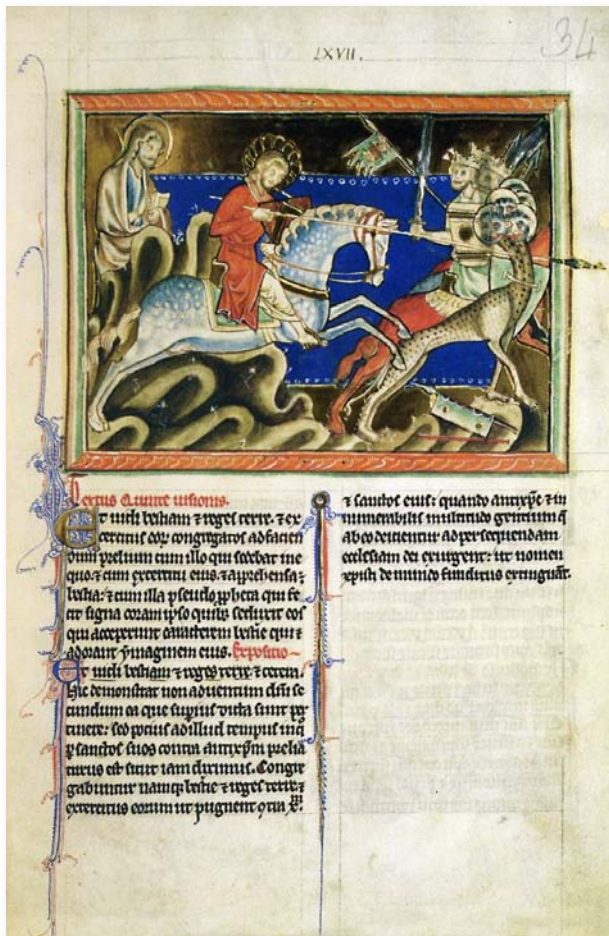 LXVII.
34
Textus Quinte uisionis.
Et uidi bestiam ⁊ reges terre. ⁊ ex
ercitus eoꝝ congregatos ad facien
dum prelium cum illo qui sedebat in e
quo. ⁊ cum exercitu eius. ⁊ apprehensa ⁊
bestia: ⁊ cum illa pseudo ꝓpheta qui fe
cit signa coram ipso quibꝫ seduxit eos
qui acceperunt caracterem bestie qui ⁊
adorant ymaginem eius. Expositio
Et uidi bestiam ⁊ reges terre ⁊ cetera.
Hic demonstrat non aduentum dn̄i se
cundum ea que supius dicta sunt ꝑ
tinere: sed pocius ad illud tempus in q̇
ꝑ sanctos suos contra antixp̄m prelia
turus est sicut iam diximus. Congre
gabuntur namqꝫ bestie ⁊ reges terre ⁊
exercitus eorum ut pugnent xp̄m
⁊ sanctos eius: quando antixp̄c ⁊ in
numerabilis multitudo gentium q̄
ab eo decipientur ad persequendam
ecclesiam dei exurgent: ut nomen
xpisti de mundo funditus extinguāt.